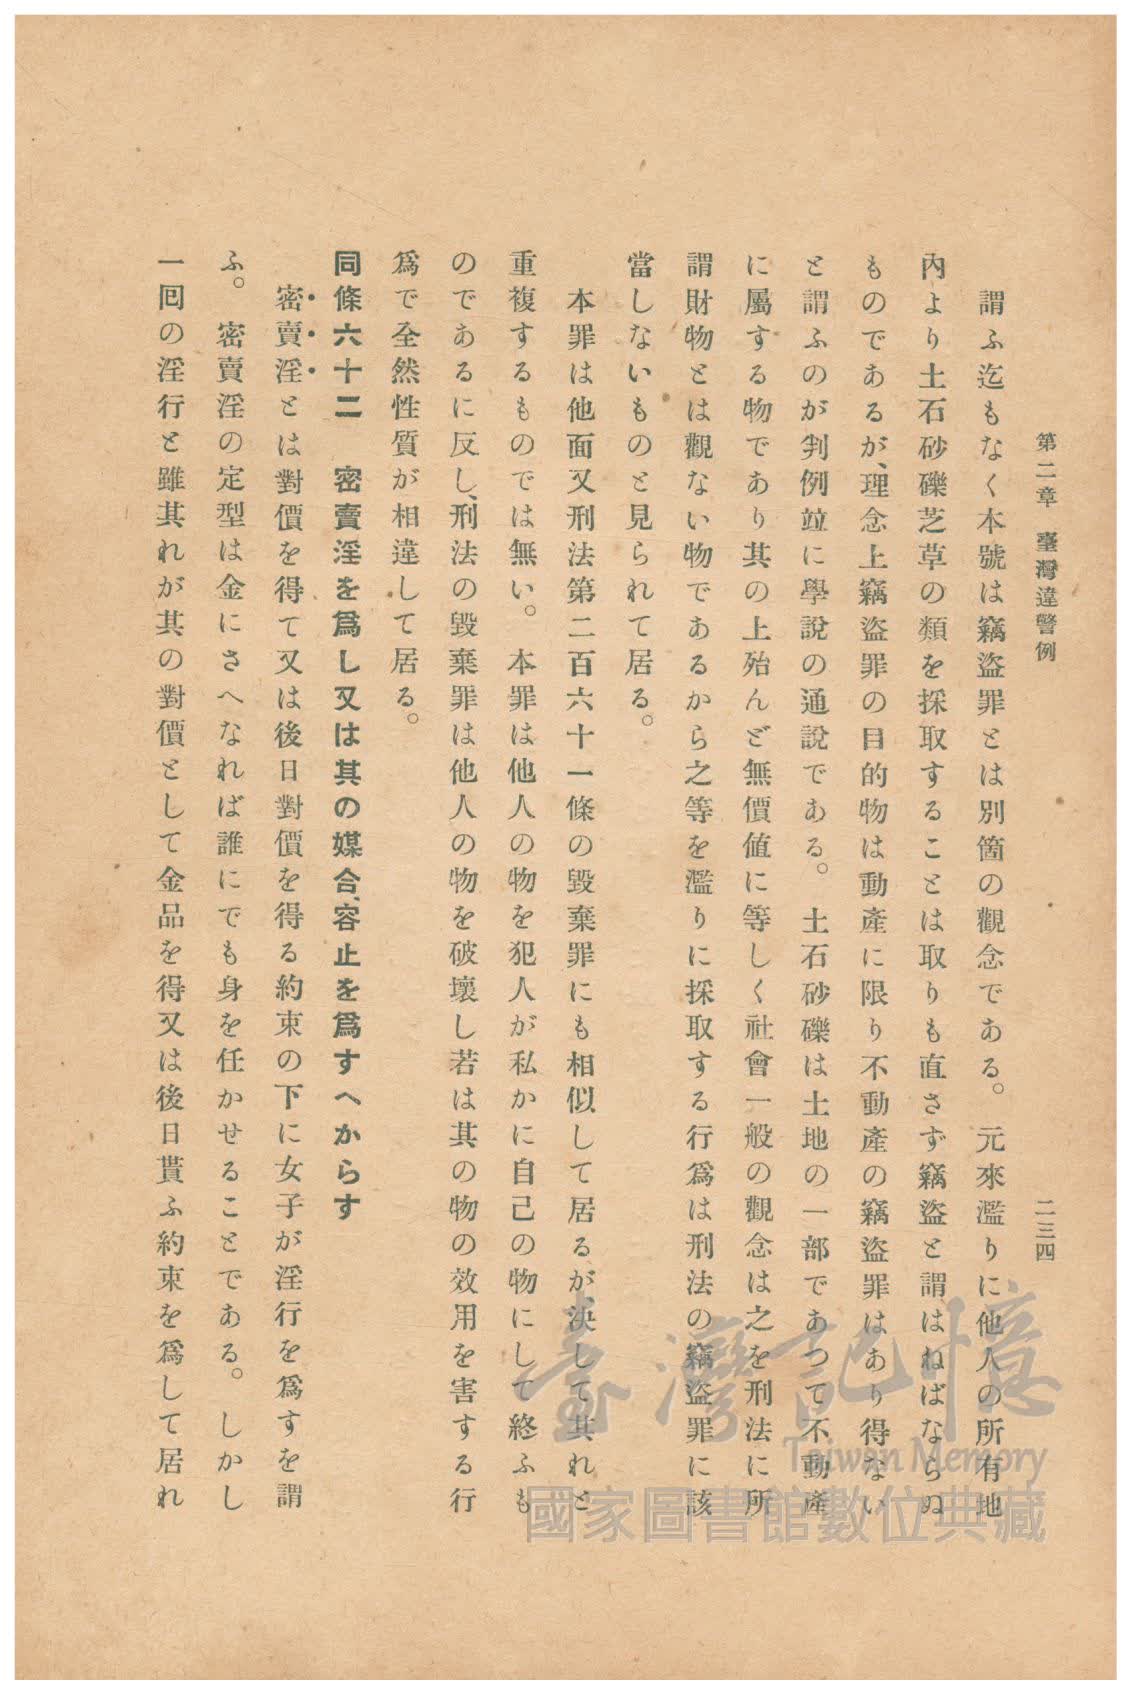 第二章　臺灣違警例　二三四
謂ふ迄もなく本號は竊盜罪とは別箇の觀念である。元來濫りに他人の所有地
內より土石砂礫芝草の類を採取することは取りも直さず竊盜と謂はねばならぬ
ものであるが、理念上竊盜罪の目的物は動產に限り不動產の竊盜罪はあり得ない
と謂ふのが判例竝に學說の通說である。土石砂礫は土地の一部であつて不動產
に屬する物であり其の上殆んど無價値に等しく社會一般の觀念は之を刑法に所
謂財物とは觀ない物であるから之等を濫りに採取する行爲は刑法の竊盜罪に該
當しないものと見られて居る。
本罪は他面又刑法第二百六十一條の毀棄罪にも相似して居るが、決して其れと
重複するものでは無い。本罪は他人の物を犯人が私かに自己の物にして終ふも
のであるに反し、刑法の毀棄罪は他人の物を破壞し若は其の物の效用を害する行
爲で全然性質が相違して居る。
同條六十二　密賣淫を爲し又は其の媒合、容止を爲すへからす
密賣淫とは對價を得て又は後日對價を得る約束の下に女子が淫行を爲すを謂
ふ。密賣淫の定型は金にさへなれば誰にでも身を任かせることである。しかし
一囘の淫行と雖其れが其の對價として金品を得又は後日貰ふ約束を爲して居れ
臺灣記憶
Taiwan Memory
國家圖書館數位典藏